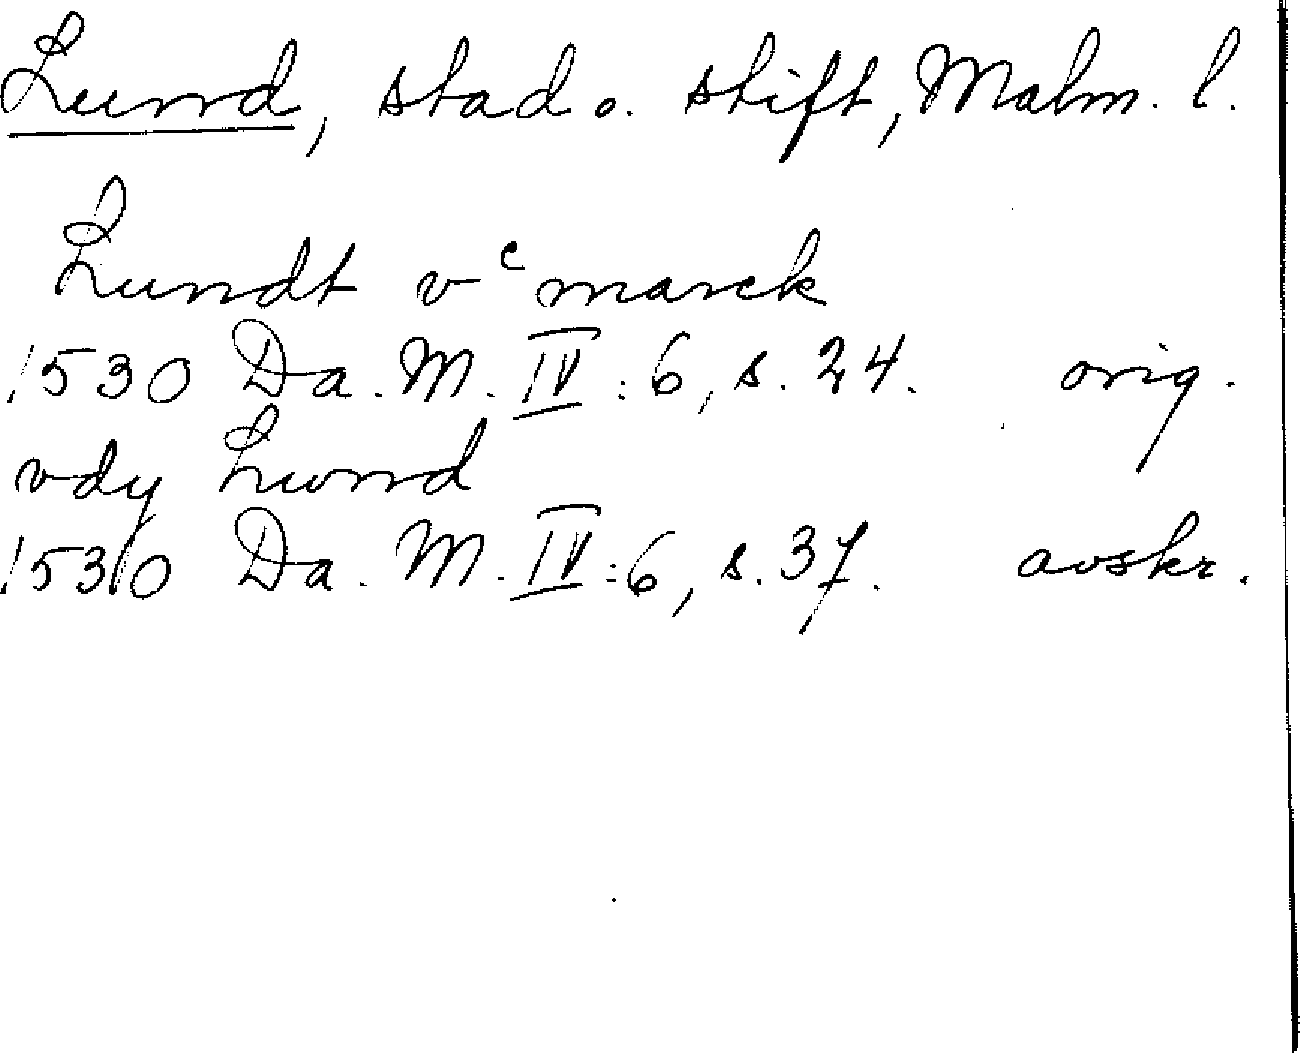 Lund, stad o. stift, Malm. l.
Lundt v c marck
1530 Da. M. IV: 6, s. 24. orig.
vdy Lwnd
1530 Da. M. IV: 6, s. 37. avskr.